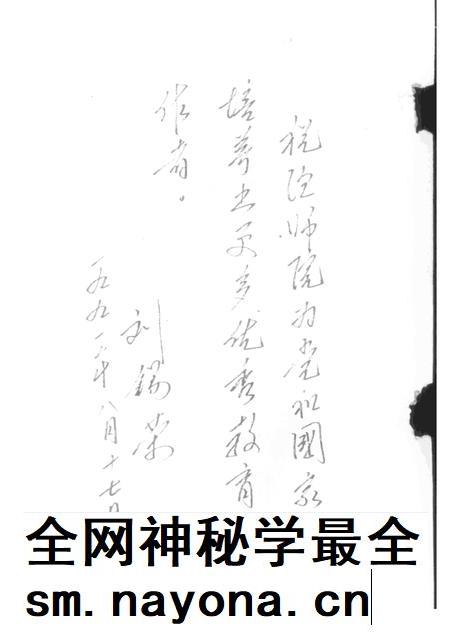 祝温师院为党和国家
培养出更多优秀教育
作者。
刘锡荣
一九九年八月十七日
全网神秘学最全
sm.nayona.cn